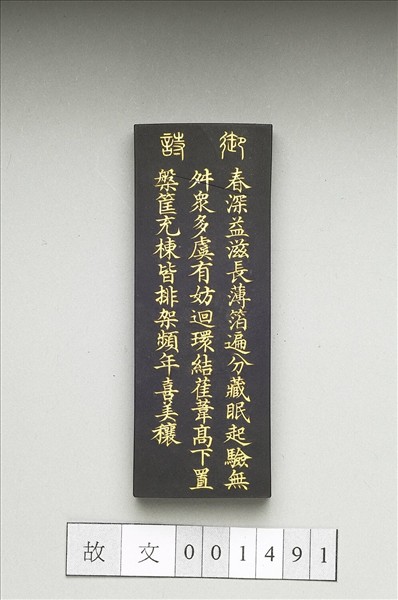 御詩
春深益滋長薄箔遍分藏眠起驗無
舛衆多虞有妨迴環結萑葦髙下置
槃筐充棟皆排架頻年喜美穰
故文001491